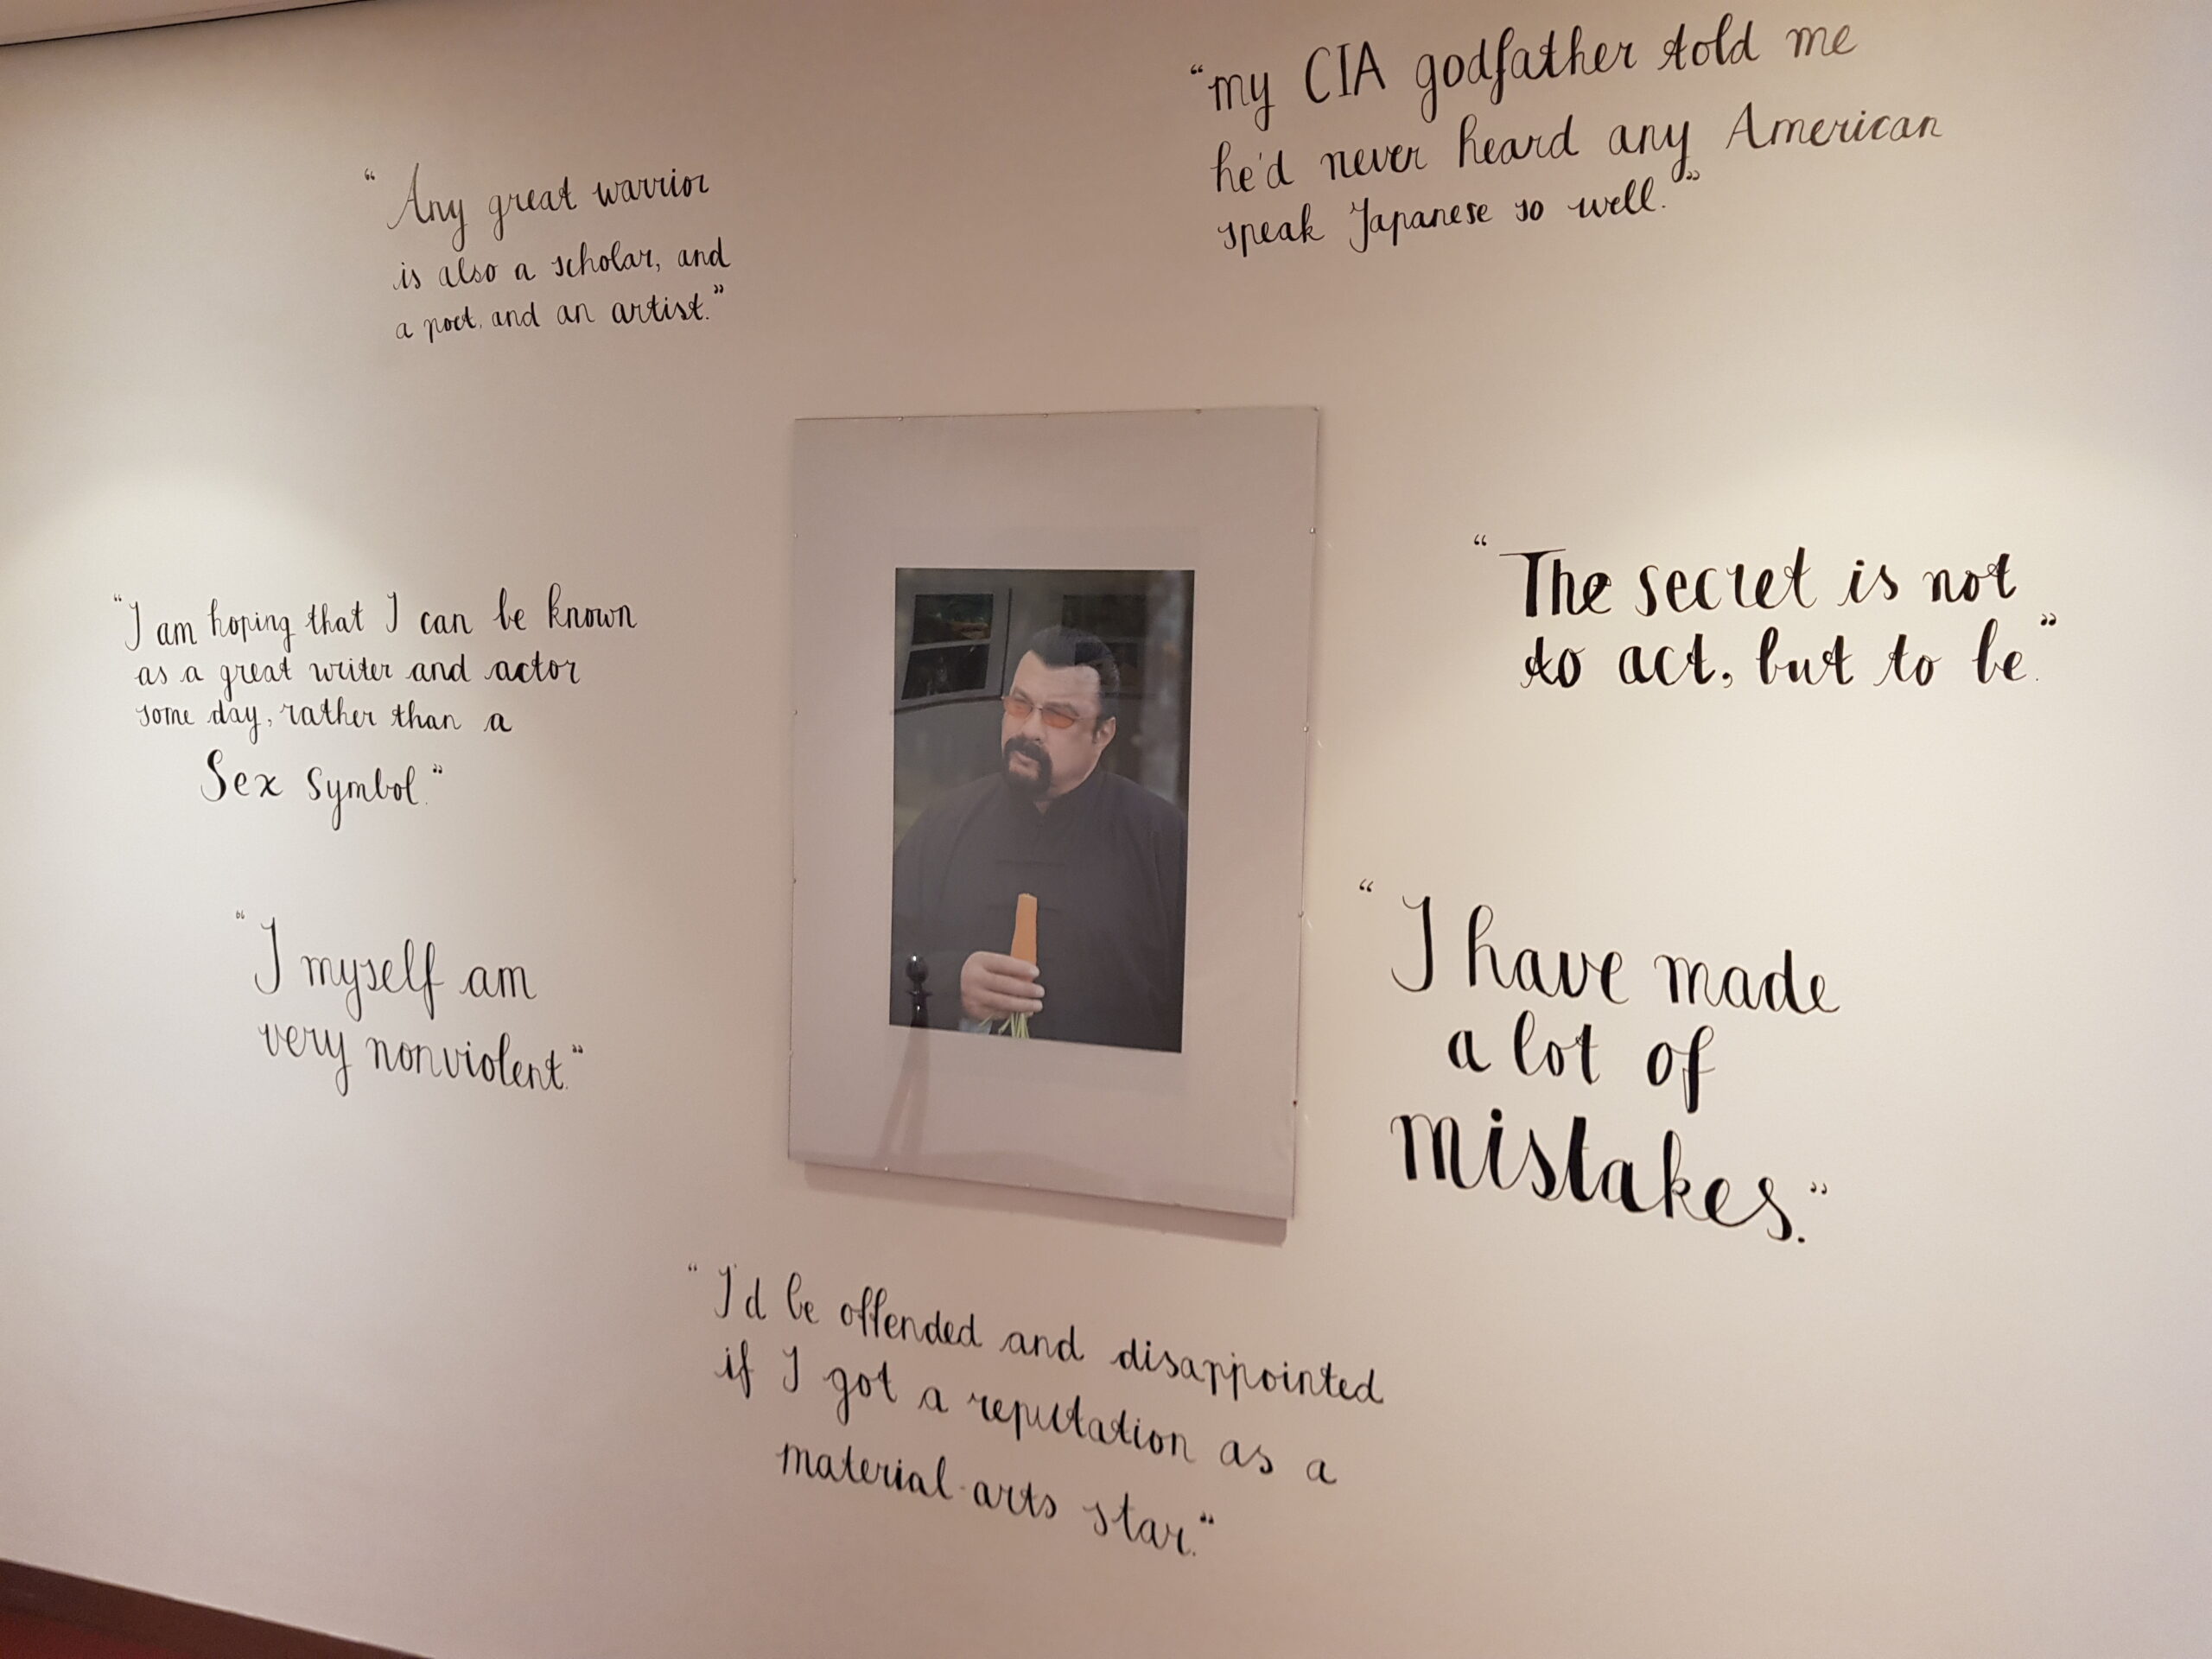 “Any great warrior
is also a scholar, and
a poet, and an artist.”
“my CIA godfather told me
he'd never heard any American
speak Japanese so well.”
“I am hoping that I can be known
as a great writer and actor
some day, rather than a
Sex Symbol.”
“The secret is not
to act, but to be.”
“I myself am
very nonviolent.”
“I have made
a lot of
mistakes.”
“I'd be offended and disappointed
if I got a reputation as a
material-arts star.”